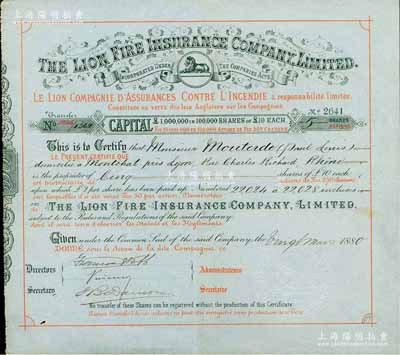 THE LION FIRE INSURANCE COMPANY, LIMITED.
INCORPORATED UNDER THE COMPANIES ACTS
LE LION COMPAGNIE D'ASSURANCES CONTRE L'INCENDIE à responsabilité limitée.
Constituée en vertu des lois Anglaises sur les Compagnies.
Transfer
No 2641
CAPITAL £1,000,000 IN 100,000 SHARES OF £10 EACH
5 SHARES
This is to Certify that Monsieur Mouterde (Paul Louis)
LE PRÉSENT CERTIFIE QUE
domicilié à Montchat près Lyon Rue Charles Richard, Rhône
is the proprietor of Cinq shares of £10 each
upon which £2 per share has been paid up. Numbered 22024 à 22028 inclusive
IN
THE LION FIRE INSURANCE COMPANY, LIMITED.
subject to the Rules and Regulations of the said Company.
Given under the Common Seal of the said Company, the Cinq Mars 1880
DONNÉ sous le Sceau de la dite Compagnie, ce
Directors
Administrateurs
Secretary
Secrétaire
No transfer of these Shares can be registered without the production of this Certificate.